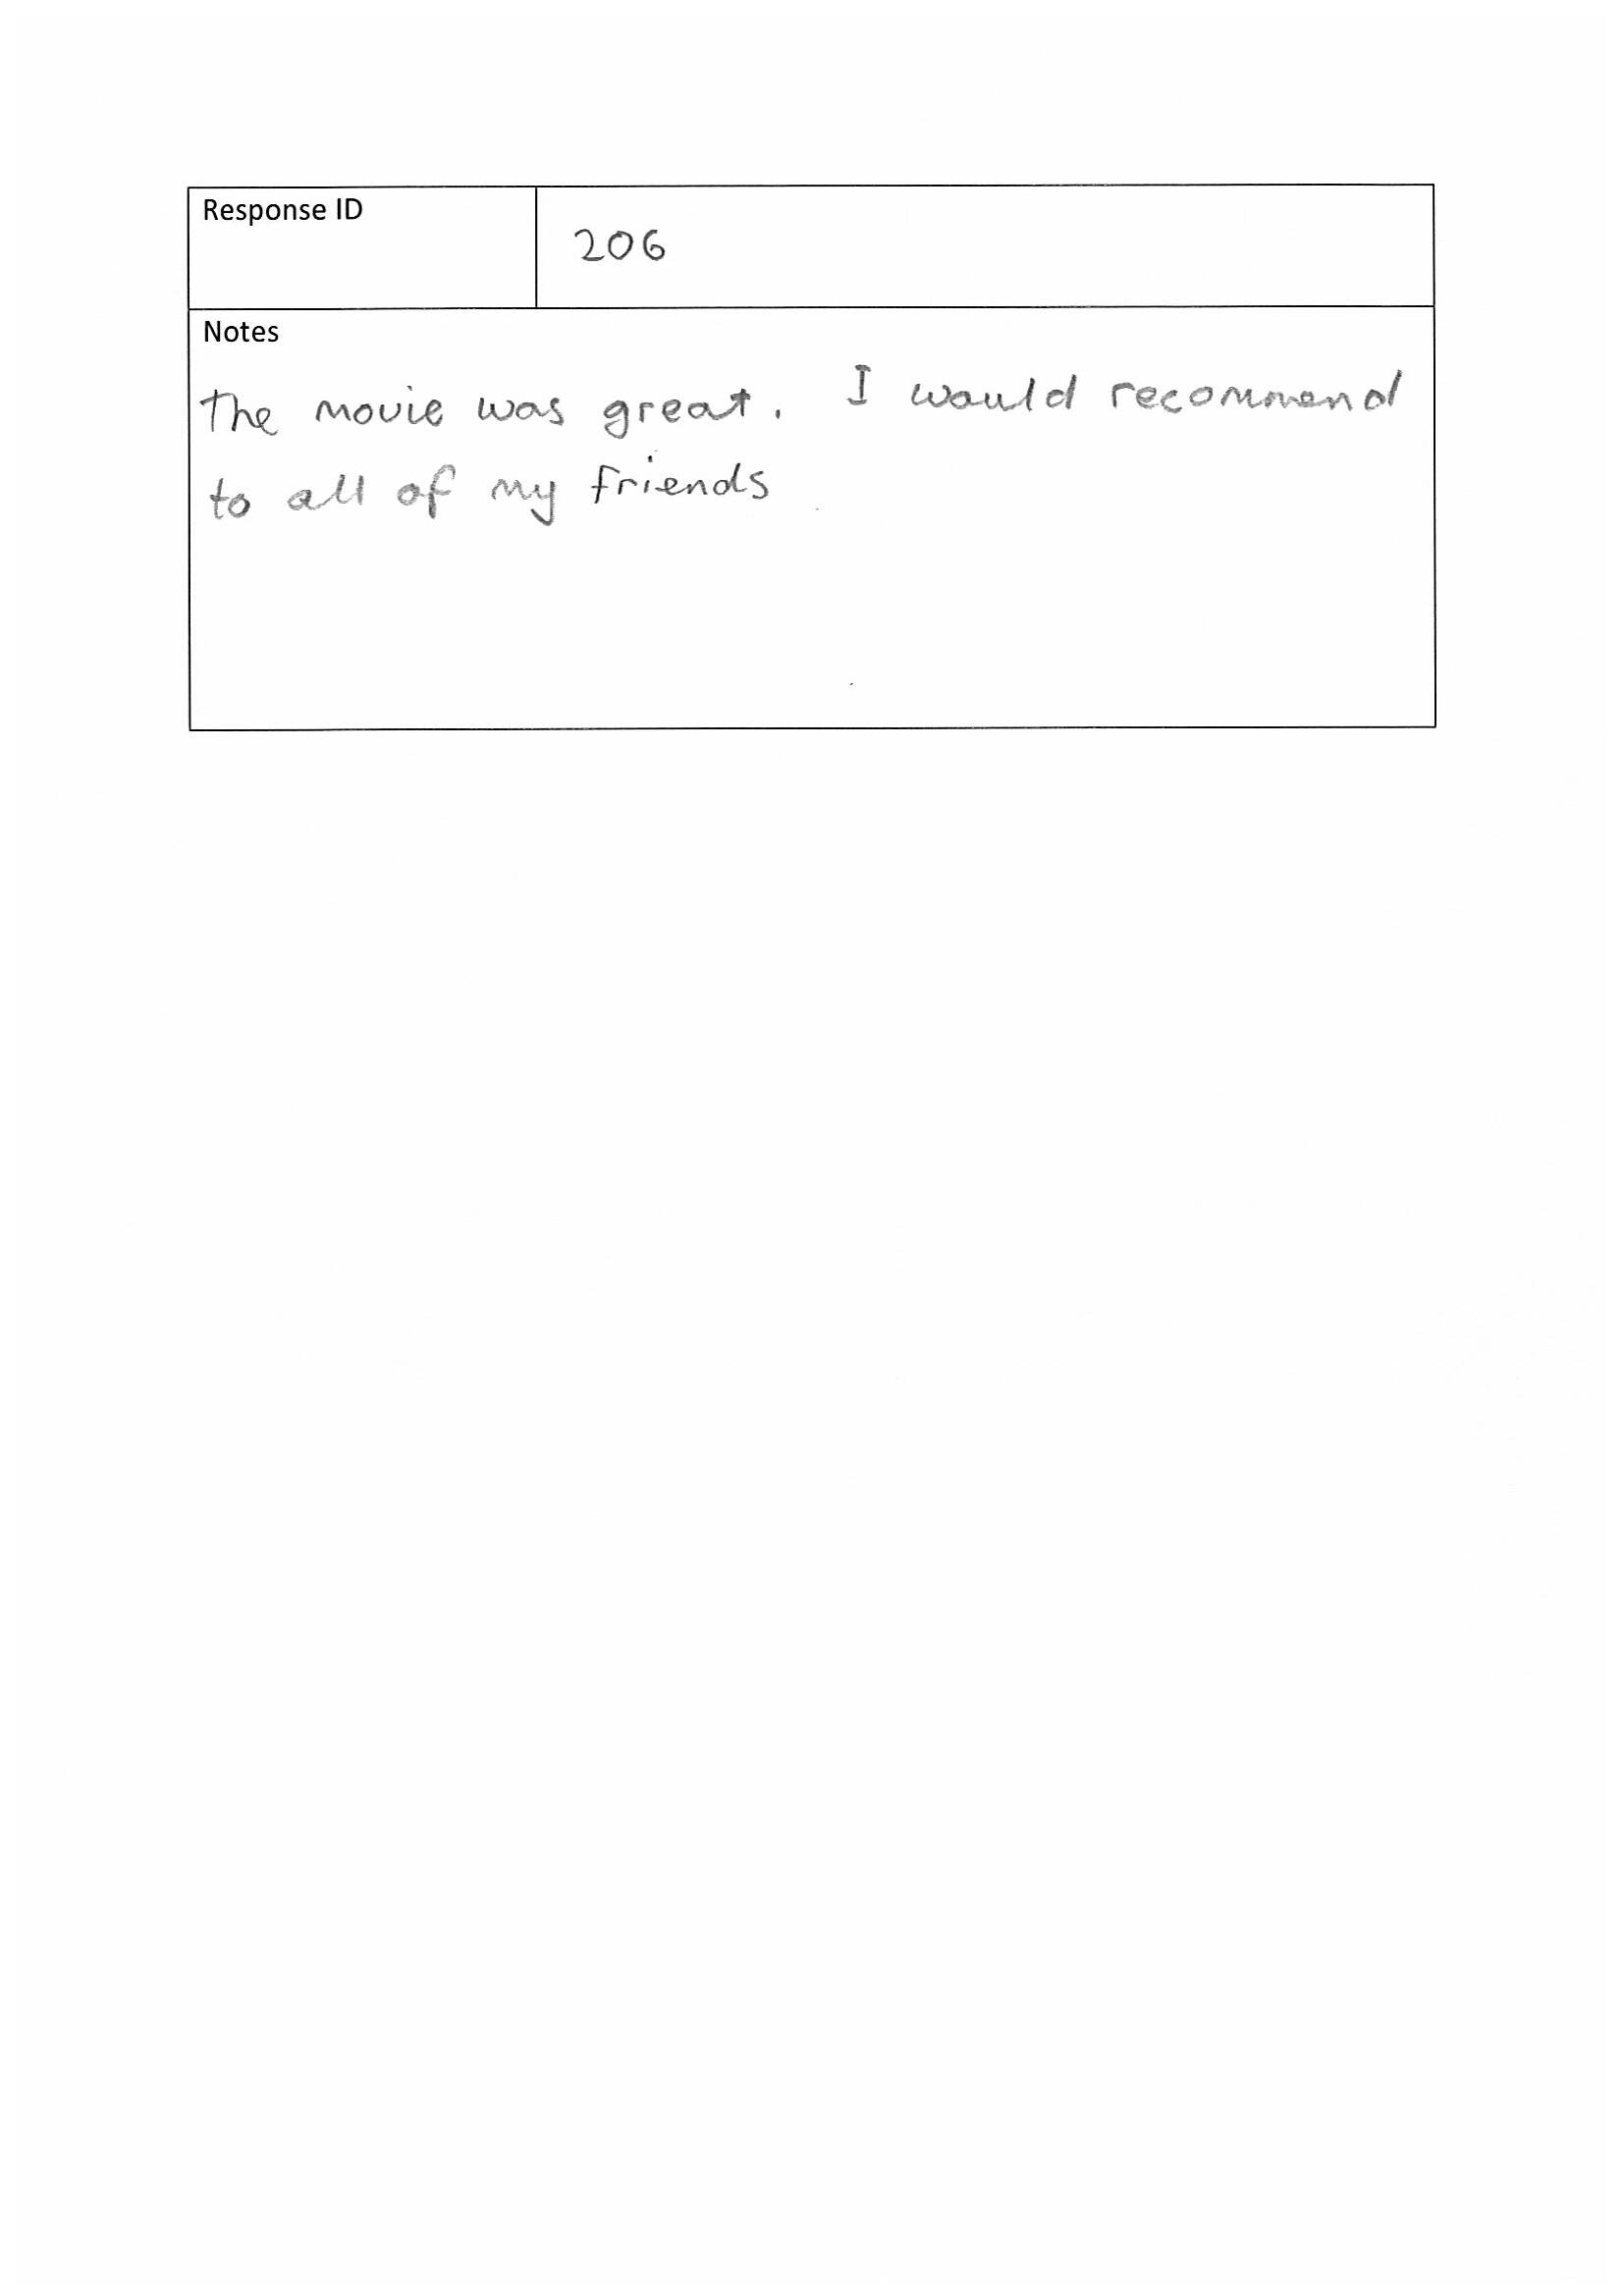 Response ID
206
Notes
The movie was great. I would recommend
to all of my friends